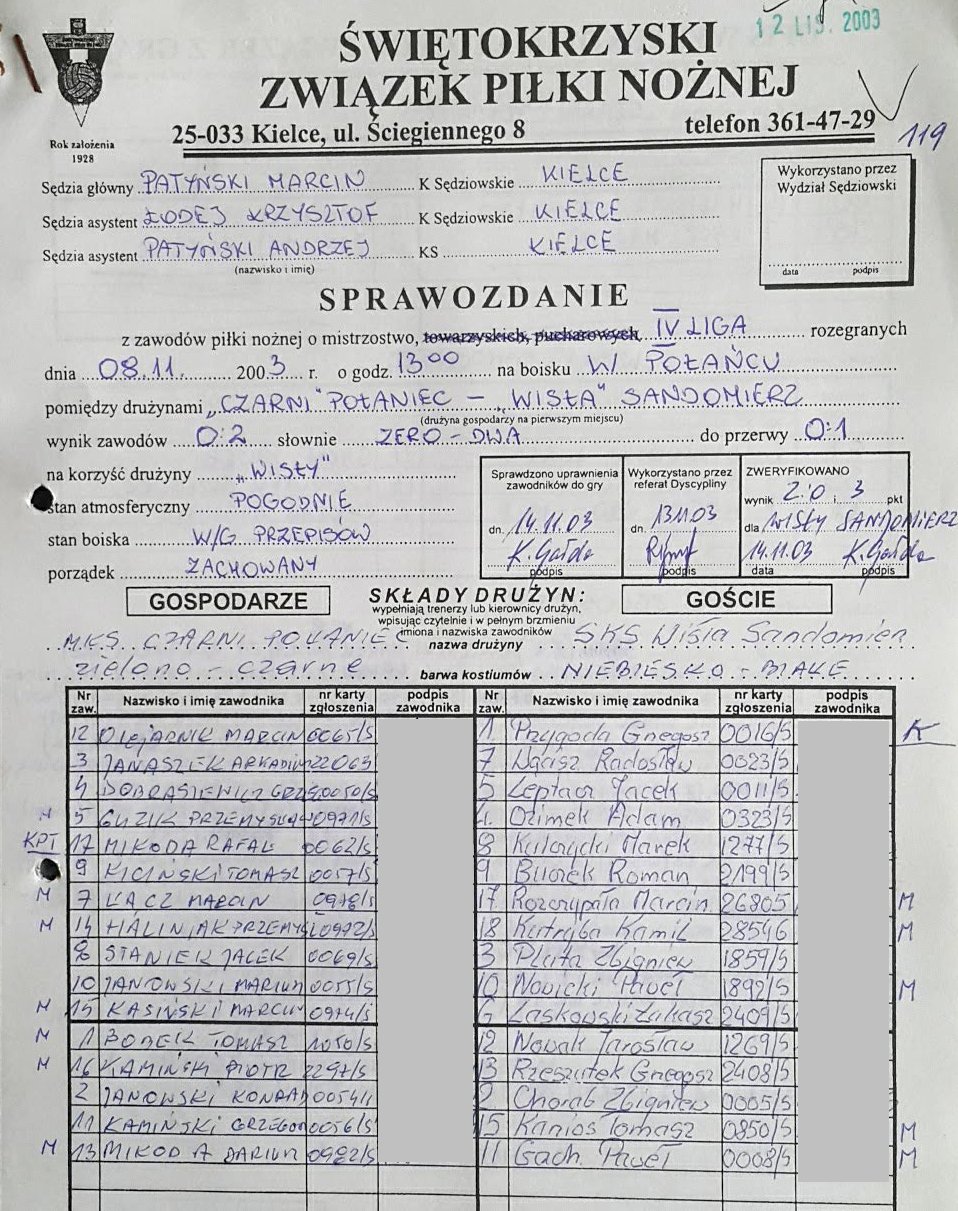 12 LIS. 2003
ŚWIĘTOKRZYSKI
ZWIĄZEK PIŁKI NOŻNEJ
25-033 Kielce, ul. Ściegiennego 8 telefon 361-47-29
119
Rok założenia
1928
Sędzia główny PATYŃSKI MARCIN K Sędziowskie KIELCE
Sędzia asystent ŁODEJ KRZYSZTOF K Sędziowskie KIELCE
Sędzia asystent PATYŃSKI ANDRZEJ KS KIELCE
(nazwisko i imię)
Wykorzystano przez
Wydział Sędziowski
data podpis
SPRAWOZDANIE
z zawodów piłki nożnej o mistrzostwo, towarzyskich, pucharowych IV LIGA rozegranych
dnia 08.11. 2003 r. o godz. 13 00 na boisku W POŁAŃCU
pomiędzy drużynami „CZARNI" POŁANIEC - „WISŁA" SANDOMIERZ
(drużyna gospodarzy na pierwszym miejscu)
wynik zawodów 0:2 słownie ZERO - DWA do przerwy 0:1
na korzyść drużyny „WISŁY"
stan atmosferyczny POGODNIE
stan boiska W/G PRZEPISÓW
porządek ZACHOWANY
Sprawdzono uprawnienia
zawodników do gry
dn. 14.11.03
K. Gałda
podpis
Wykorzystano przez
referat Dyscypliny
dn. 13.11.03
podpis
ZWERYFIKOWANO
wynik 2:0 i 3 pkt
dla WISŁY SANDOMIERZ
14.11.03 K. Gałda
data podpis
GOSPODARZE
SKŁADY DRUŻYN:
wypełniają trenerzy lub kierownicy drużyn,
wpisując czytelnie i w pełnym brzmieniu
imiona i nazwiska zawodników
GOŚCIE
MKS CZARNI POŁANIEC nazwa drużyny SKS Wisła Sandomierz
zielono - czarne barwa kostiumów NIEBIESKO - BIAŁE
Nr zaw. Nazwisko i imię zawodnika nr karty zgłoszenia podpis zawodnika Nr zaw. Nazwisko i imię zawodnika nr karty zgłoszenia podpis zawodnika
12 OLEJARNIK MARCIN 0065/S 1 Przygoda Grzegosz 0016/S K
3 JANASZEK ARKADIUSZ 22063 7 Wącisz Radosław 0023/S
4 DOBRASIEWICZ GRZEG 0050/S 5 Leptacz Jacek 0011/S
M 5 GUZIK PRZEMYSŁAW 0971/S 4 Ozimek Adam 0323/S
KPT 17 MIKODA RAFAŁ 0062/S 8 Marek 1277/S
9 KICIŃSKI TOMASZ 0057/S 9 Roman 2199/S
M 7 ŁĄCZ MARCIN 0978/S 17 Rozczypała Marcin 26805 M
M 14 HALINIAK PRZEMYS 0972/S 18 Kutryba Kamil 28546 M
8 STANIEK JACEK 0069/S 3 Pluta Zbigniew 1859/S
10 JANOWSKI MARIUSZ 0055/S 10 Nowicki Paweł 1892/S M
M 15 KASIŃSKI MARCIN 0974/S 6 Laskowski Łukasz 2409/S
M 1 BOBEK TOMASZ 1050/S 12 Nowak Jarosław 1269/S
M 16 KAMIŃSKI PIOTR 2297/S 13 Rzeszutek Grzegosz 2408/S
2 JANOWSKI KONRAD 0054/S 2 Chorab Zbigniew 0005/S
11 KAMIŃSKI GRZEGORZ 0056/S 15 Kanios Tomasz 0850/S M
M 13 MIKODA DARIUSZ 0982/S 11 Gach Paweł 0008/S M